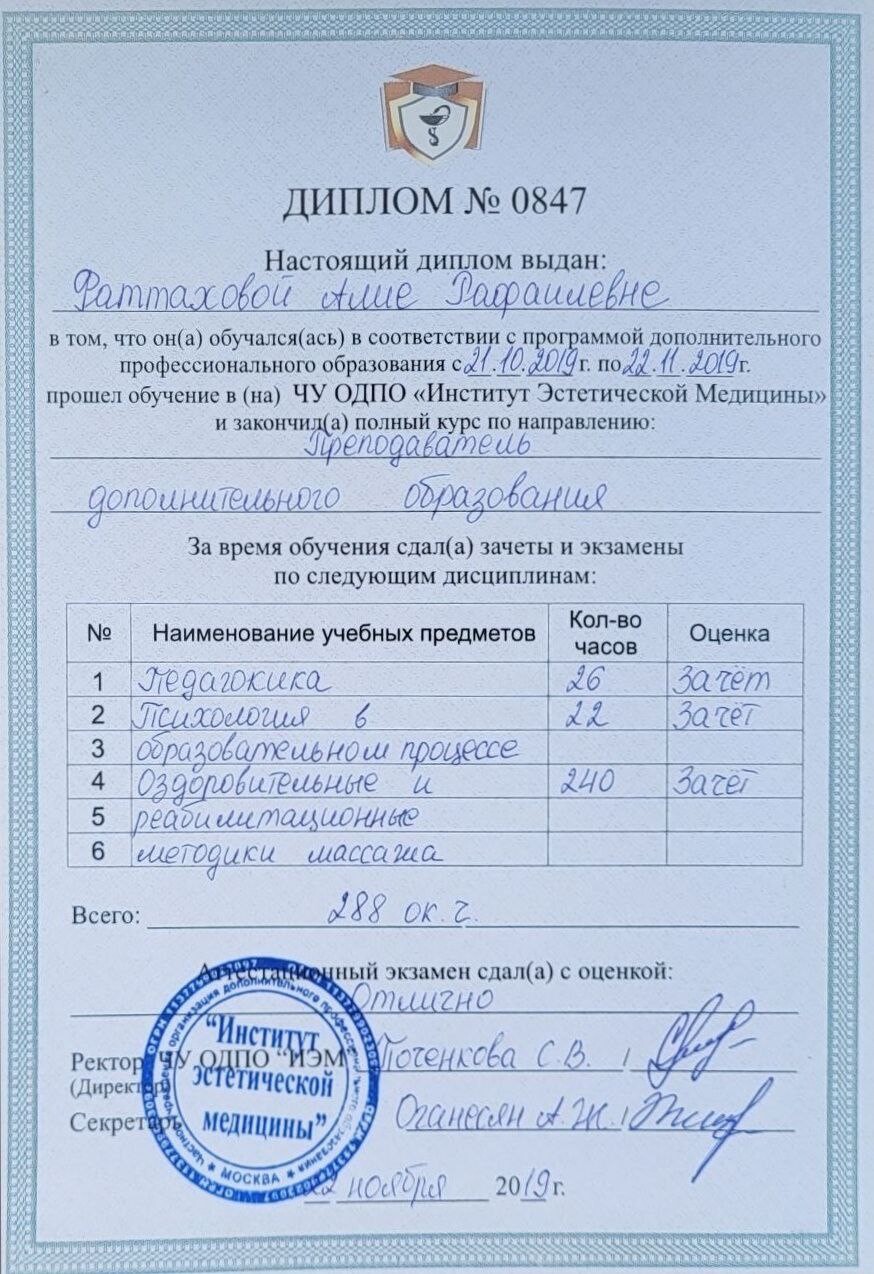 ДИПЛОМ № 0847
Настоящий диплом выдан:
Фаттаховой Алие Рафаилевне
в том, что он(а) обучался(ась) в соответствии с программой дополнительного
профессионального образования с 21.10.2019г. по 22.11.2019г.
прошел обучение в (на) ЧУ ОДПО «Институт Эстетической Медицины»
и закончил(а) полный курс по направлению:
Преподаватель
дополнительного образования
За время обучения сдал(а) зачеты и экзамены
по следующим дисциплинам:
№ Наименование учебных предметов Кол-во часов Оценка
1 Педагокика 26 Зачёт
2 Психология в 22 Зачёт
3 образовательном процессе
4 Оздоровительные и 240 Зачёт
5 реабилитационные
6 методики массажа
Всего: 288 ак. ч.
Аттестационный экзамен сдал(а) с оценкой:
Отлично
Ректор ЧУ ОДПО "ИЭМ" Поченкова С.В. /
(Директор)
Секретарь Оганесян А.Ж. /
"Институт
эстетической
медицины"
МОСКВА
22 ноября 2019г.